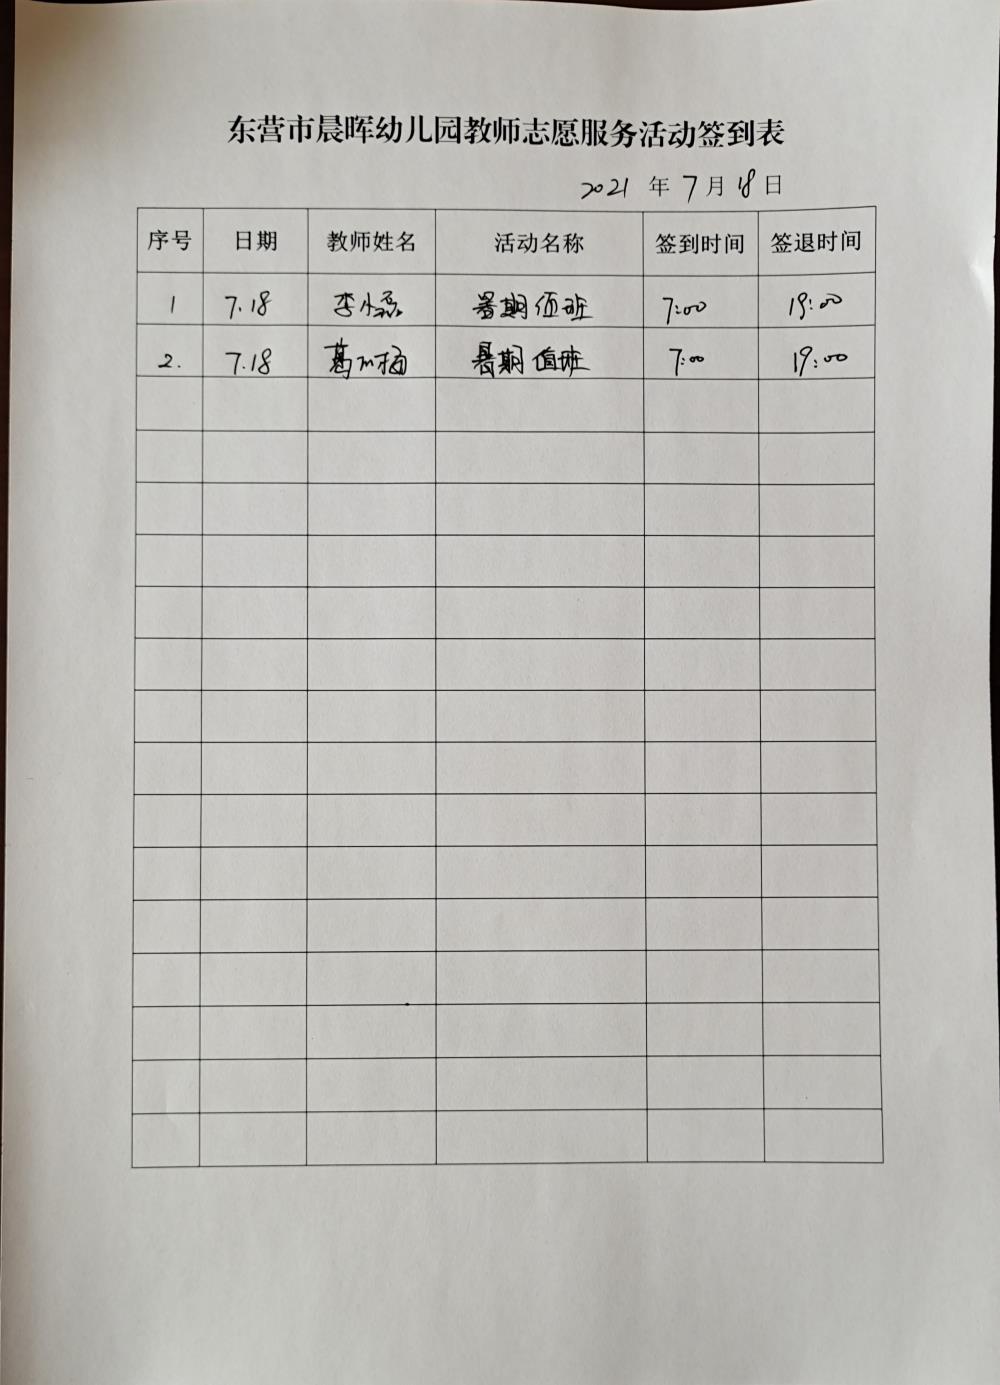 东营市晨晖幼儿园教师志愿服务活动签到表
2021 年 7 月 18 日
序号 日期 教师姓名 活动名称 签到时间 签退时间
1 7.18 李小磊 暑期值班 7:00 19:00
2. 7.18 暑期值班 7:00 19:00